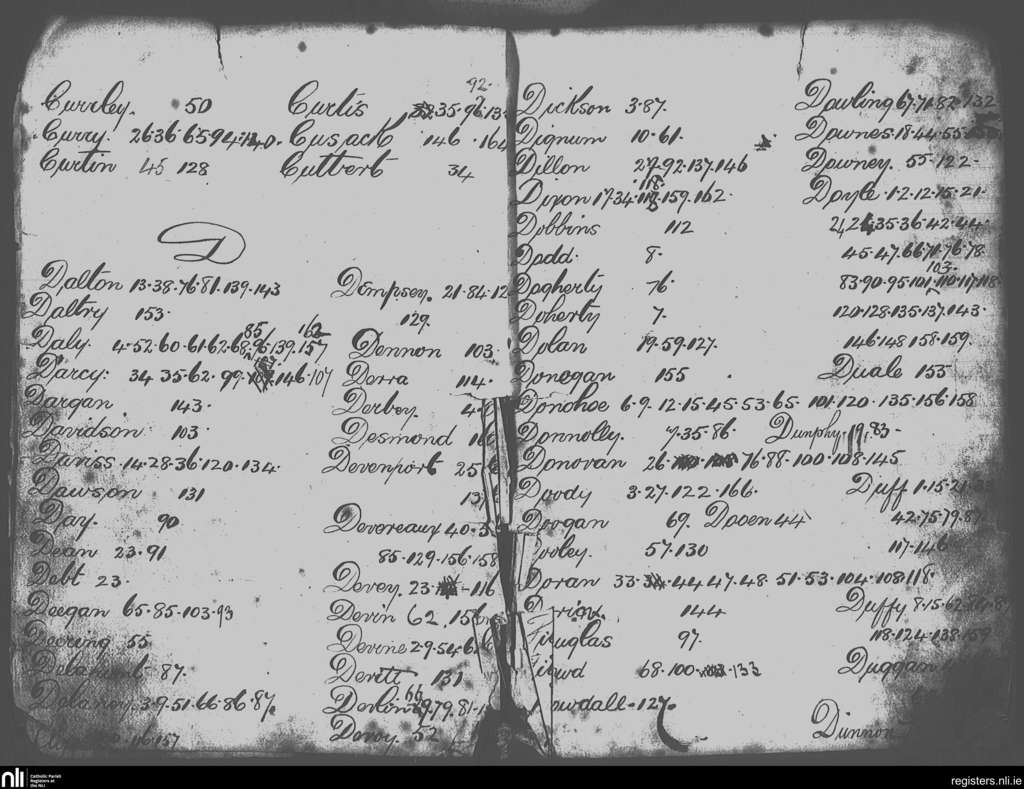 92.
Currley. 50
Curry. 26 36 65 94
Curtin 45 128
Curtis 35 96 13
Cusack 146 · 164
Cutbert 34
D
Dalton 13·38·76·81·139·143
Daltry 153·
85 162
Daly. 4·52·60·61·62·68·96·139·157
Darcy: 34 35·62· 99· 146·107
Dargan 143·
Davidson 103·
14·28·36·120·134·
Dawson 131
Day. 90
Dean 23·91
Debt 23·
Deegan 65·85·103·93
Deering 55
87.
Delaney 3·9·51·66·86·87,
157
Dempsey. 21·84·12
129.
Dennon 103·
Derra 114·
Derbey. 4
Desmond
Devenport 25
Devereaux 40·
85·129·156·158
Devey. 23 116
Devin 62
Devine 2·9·54
Devitt 131
66
79.81
Devoy. 52
Dickson 3·87·
Dignum 10·61·
Dillon 27·92·137·146
118·
Dixon 17·34· 159·162·
Dobbins 112
Dodd· 8·
Dogherty 76·
Doherty 7·
Dolan 19·59·127·
Donegan 155
Donohoe 6·9·12·15·45·53·65· 101·120·135·156·158
Donnolly. 7·35·86· Dunphy. 19, 83·
Donovan 26· 76·88·100·108·145
Doody 3·27·122·166·
Doogan 69. Dooen 44
Dooley. 57·130
Doran 33· 44 47·48·51·53·104·108·118·
144
Douglas 97·
68·100· 133
Dowdall·127·
Dowling 67·71·82·132
Downes·18·44·55
Downey. 55·122·
Doyle·1·2·12·15·21·
35·36·42·44·
45·47·66 71·76·78·
103·
83·90·95·101·110·117·118
120·128·135·137·143·
146·148 158·159·
Duale 155
Duff 1·15·21
42·75·79·87
117·146
Duffy 8·15·62
118·124·138·159
Duggan
Dunnon
nli Catholic Parish
Registers at
the NLI
registers.nli.ie